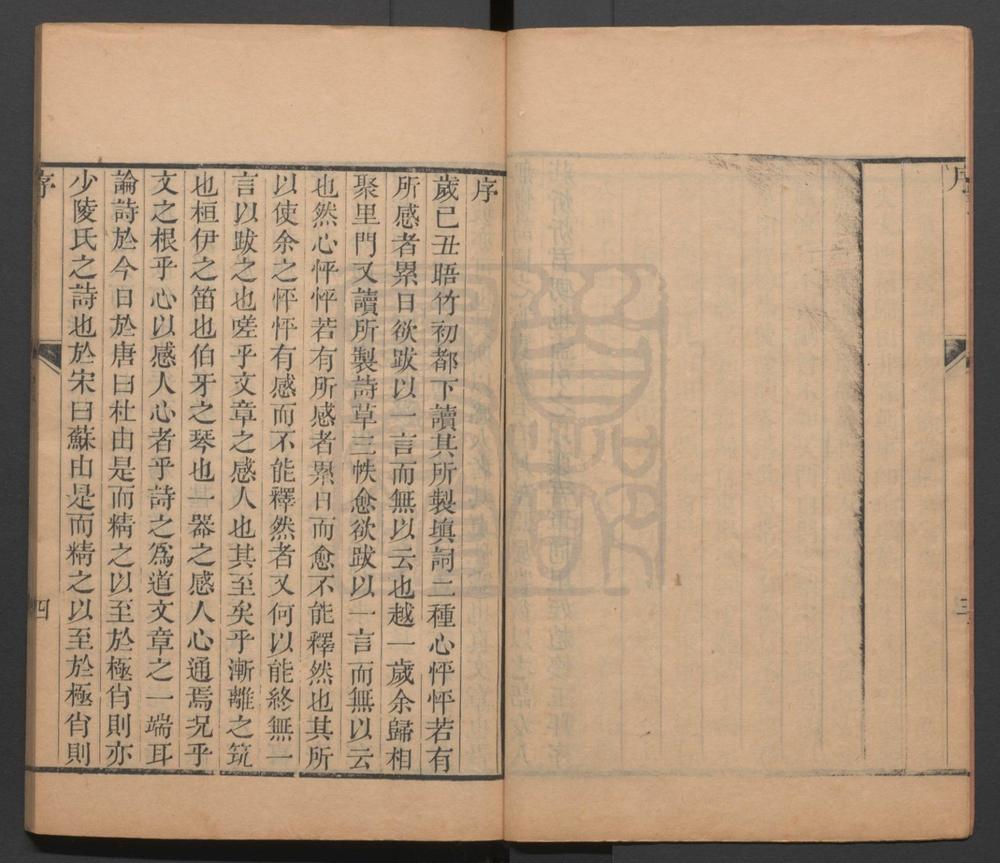 序
三
序
歲己丑晤竹初都下讀其所製填詞二種心怦怦若有
所感者累日欲跋以一言而無以云也越一歲余歸相
聚里門又讀所製詩草三帙愈欲跋以一言而無以云
也然心怦怦若有所感者累日而愈不能釋然也其所
以使余之怦怦有感而不能釋然者又何以能終無一
言以跋之也嗟乎文章之感人也其至矣乎漸離之筑
也桓伊之笛也伯牙之琴也一器之感人心通焉况乎
文之根乎心以感人心者乎詩之爲道文章之一端耳
論詩於今日於唐曰杜由是而精之以至於極肖則亦
少陵氏之詩也於宋曰蘇由是而精之以至於極肖則
序
四